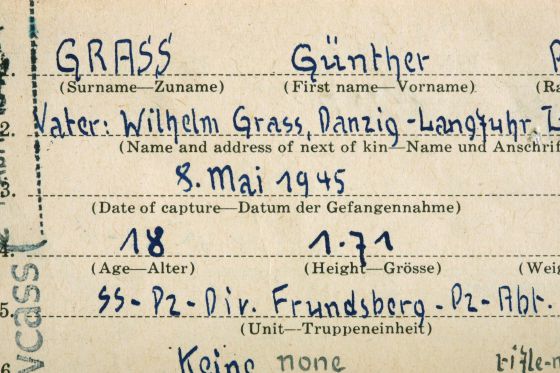 1. GRASS Günther
(Surname—Zuname) (First name—Vorname) (Ra
2. Vater: Wilhelm Grass, Danzig-Langfuhr,
(Name and address of next of kin—Name und Anschrif
3. 8. Mai 1945
(Date of capture—Datum der Gefangennahme)
4. 18 1.71
(Age—Alter) (Height—Grösse) (Wei
5. SS-Pz-Div. Frundsberg-Pz-Abt.
(Unit—Truppeneinheit)
6 Keine none